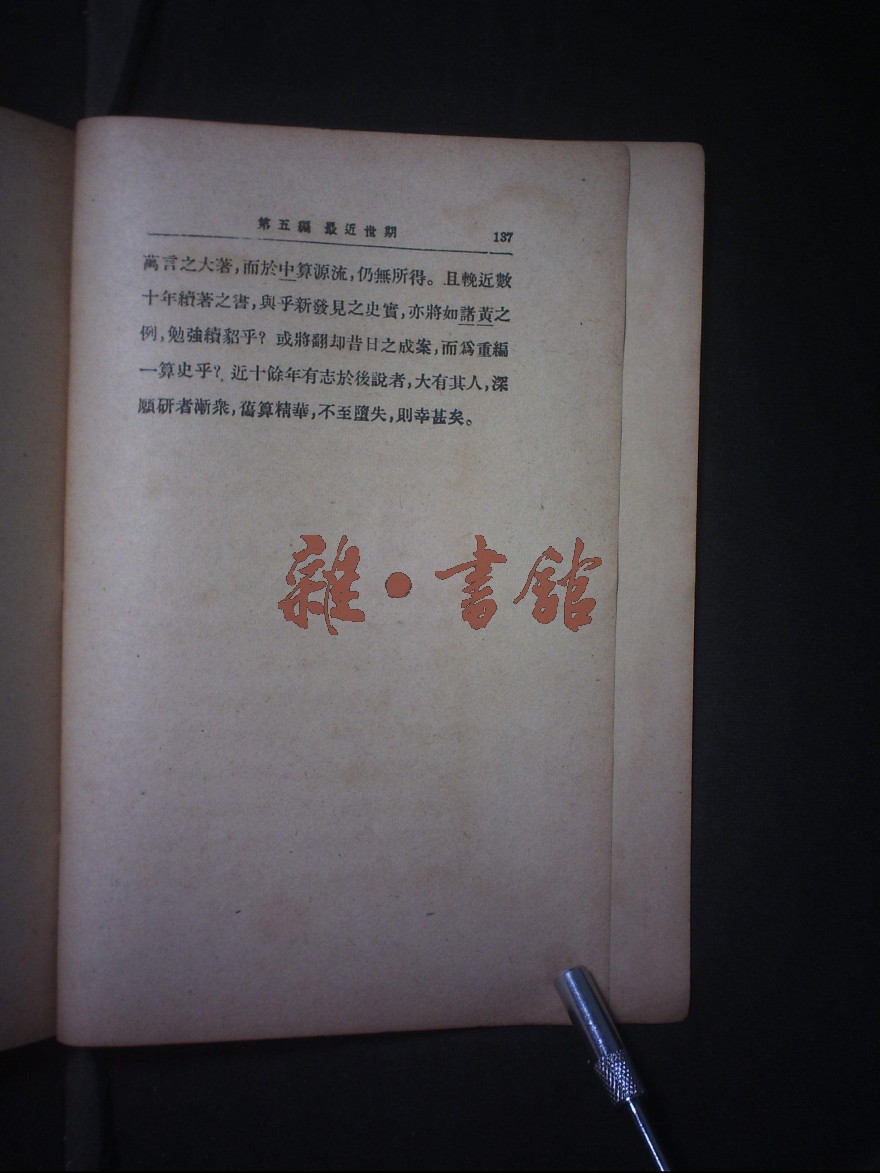 第五編 最近世期 137
萬言之大著，而於中算源流，仍無所得。且輓近數
十年續著之書，與乎新發見之史實，亦將如諸黃之
例，勉強續貂乎？或將翻却昔日之成案，而爲重編
一算史乎？近十餘年有志於後說者，大有其人，深
願研者漸衆，舊算精華，不至墮失，則幸甚矣。
雜·書館